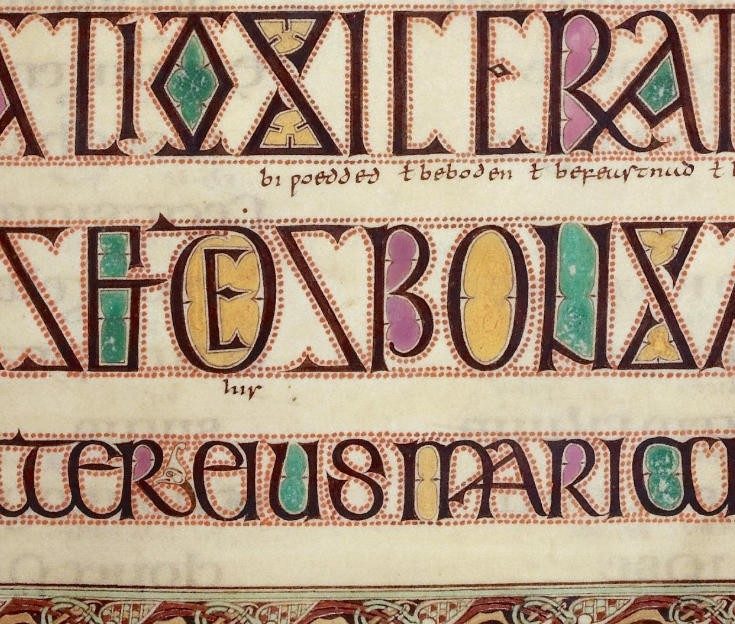 ATIO SIC ERAT
bi ƿoedded ł beboden ł befeastnad ł
SET DESPONSA
his
TER EIUS MARIA